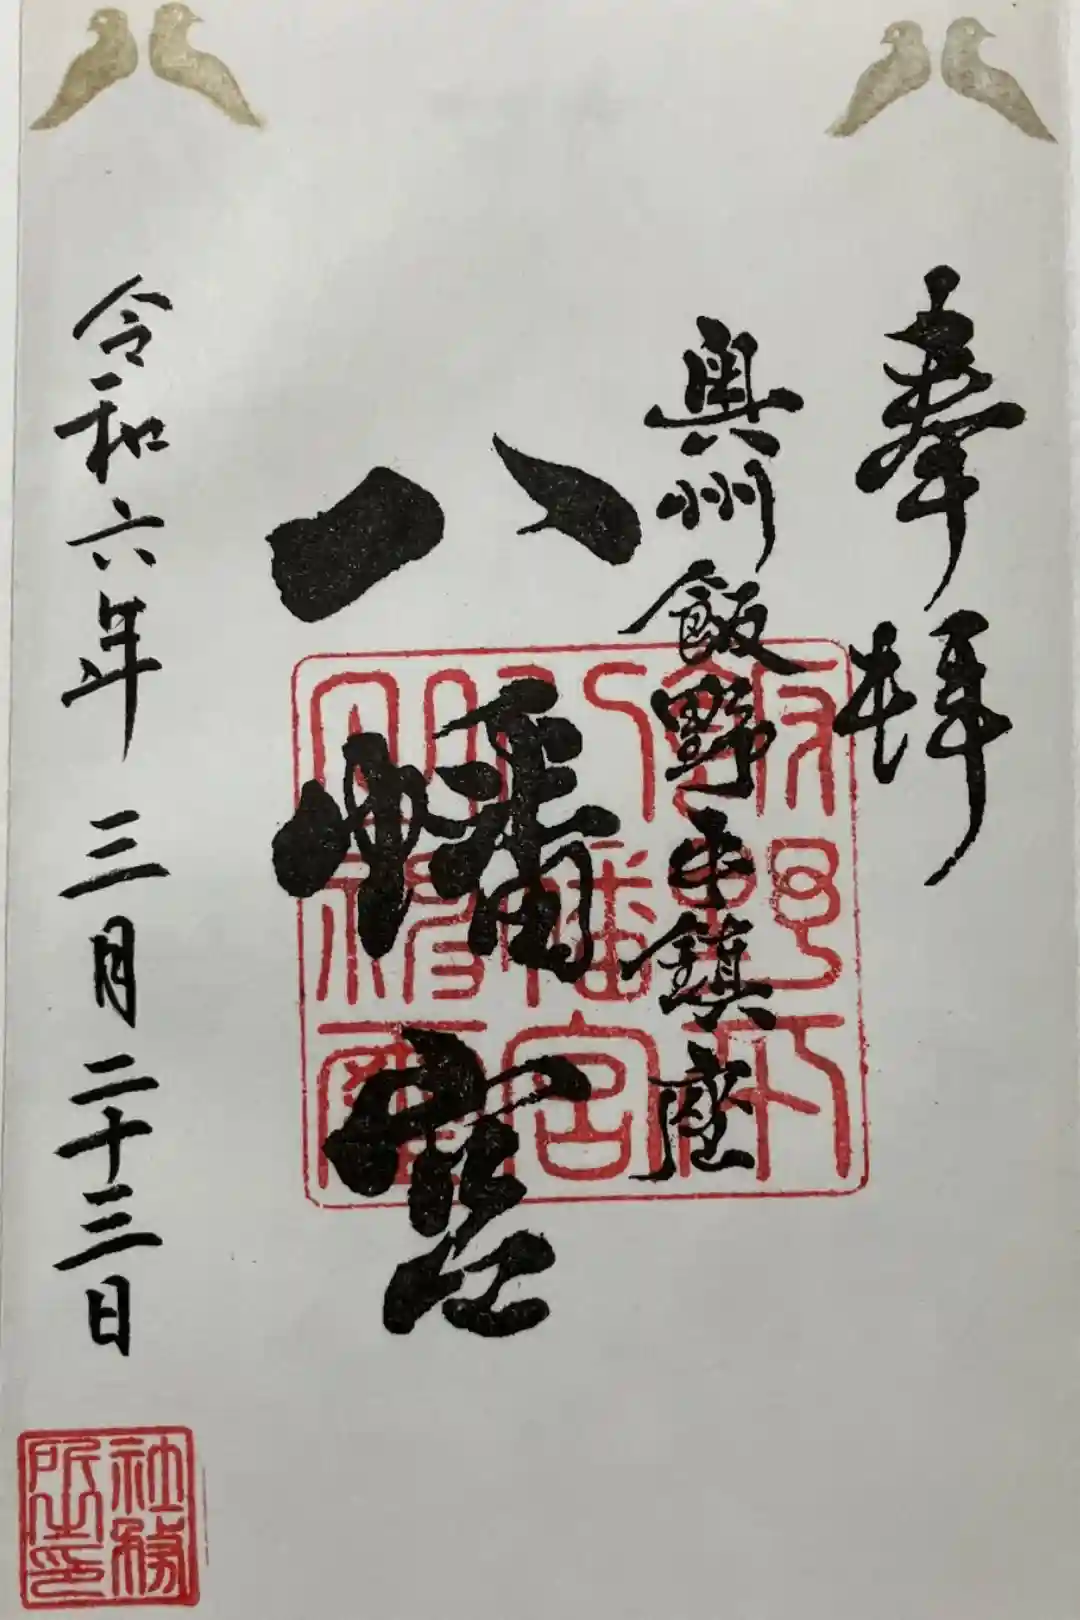 奉拝
奥州飯野平鎮座
八幡宮
飯野平
八幡宮
令和六年三月二十三日
社務
所之印